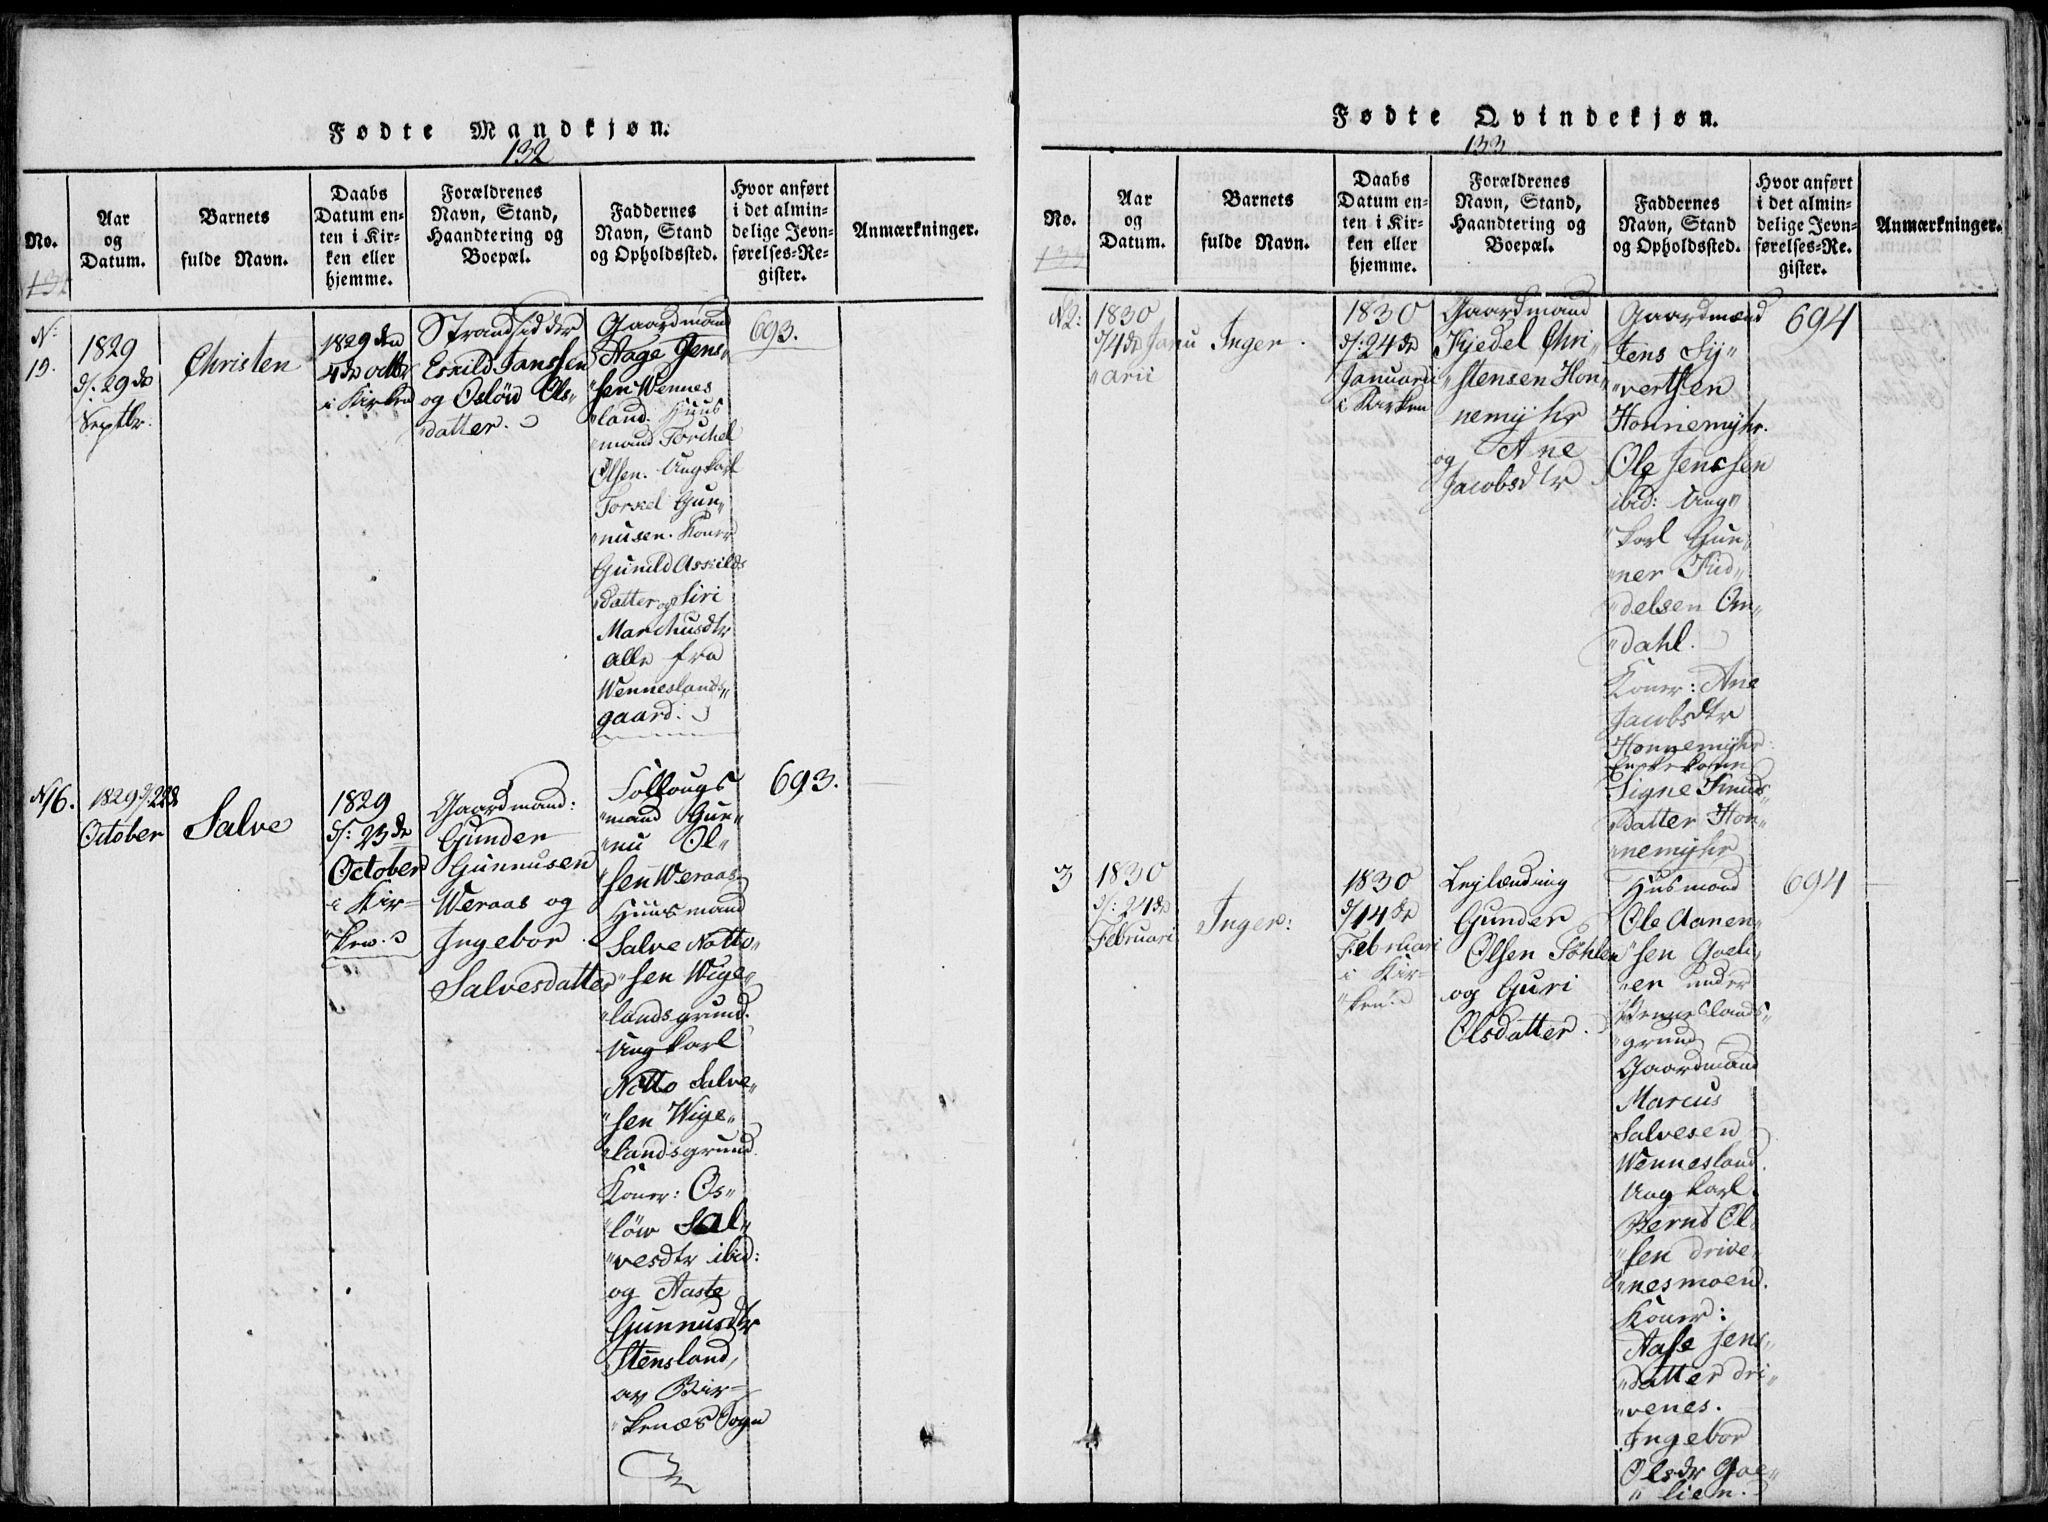 Fødte Mandkjøn.
132
No.
Aar
og
Datum.
Barnets
fulde Navn.
Daabs
Datum en-
ten i Kir-
ken eller
hjemme.
Forældrenes
Navn, Stand,
Haandtering og
Boepæl.
Faddernes
Navn, Stand
og Opholdssted.
Hvor anført
i det almin-
delige Jevn-
førelses-Re-
gister.
Anmærkninger.
N:
15.
1829
d: 29de
Septbr.
Christen
1829 den
4de octbr
i Kirken
Strandsidder
Eskild Janssen
og Oslöw Ols-
datter.
Gaardmand
Aage Jens-
sen Wennes
land. Huus
mand Torchel
Olsen. Ungkarl
Torkel Gun-
nusen. Koner
Gunild Askilds
datter og Siri
Marchusdtr
alle fra
Wenneslands-
gaard.
693.
N 16.
1829 d: 22de
October
Salve
1829
d: 23de
October
i Kir-
ken.
Gaardmand:
Gunder
Gunnusen
Weraas og
Ingebor
Salvesdatter
mand Gun-
nu Ol-
sen Weraas
Huusmand
Salve Notto-
sen Wige-
landsgrund.
Ungkarl
Notto Salve-
sen Wige-
landsgrund.
Koner: Os-
löw Sal-
vesdtr ibid:
og Aaste
Gunnusdtr
Stensland,
av Bir-
kenæs Sogn
693.
Fødte Qvindekjøn.
133
No.
Aar
og
Datum.
Barnets
fulde Navn.
Daabs
Datum en-
ten i Kir-
ken eller
hjemme.
Forældrenes
Navn, Stand,
Haandtering og
Boepæl.
Faddernes
Navn, Stand
og Opholdssted.
Hvor anført
i det almin-
delige Jevn-
førelses-Re-
gister.
Anmærkninger.
N 2:
1830
d/4de Janu
arii
Inger
1830
d: 24de
Januarii
i Kirken
Gaardmand
Kjedel Chri-
stensen Hon-
nemyhr
og Ane
Jacobsdtr
Gaardmænd
Jens Sy-
vertsen
Honnemyhr.
Ole Jenssen
ibid: Ung-
karl Gun-
ner Fid-
delsen Om-
dahl.
Koner: Ane
Jacobsdtr
Honnemyhr
Enkekone
Signe Knuds-
datter Hon-
nemyhr
694
3
1830
d: 24de
Februari
Inger:
1830
d/14de
Februari
i Kir-
ken.
Lejlænding
Gunder
Olsen Döhlen
og Guri
Olsdatter.
Husmand
Ole Aanen-
sen Goeli-
en under
Wenneslands-
grund
Gaardmand
Marcus
Salvesen
Wennesland.
Ungkarl
Bernt Ol-
sen drive-
nesmoen.
Koner:
Aase Jens-
datter dri-
venes.
Ingebor
Olsdr Goe-
lien.
694